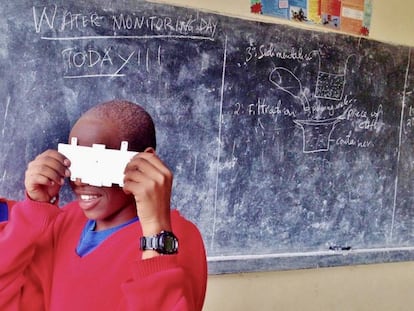 WATER MONITORING DAY
TODAY!!!
3. Sedimentation
2. Filtration
piece of
cloth
container